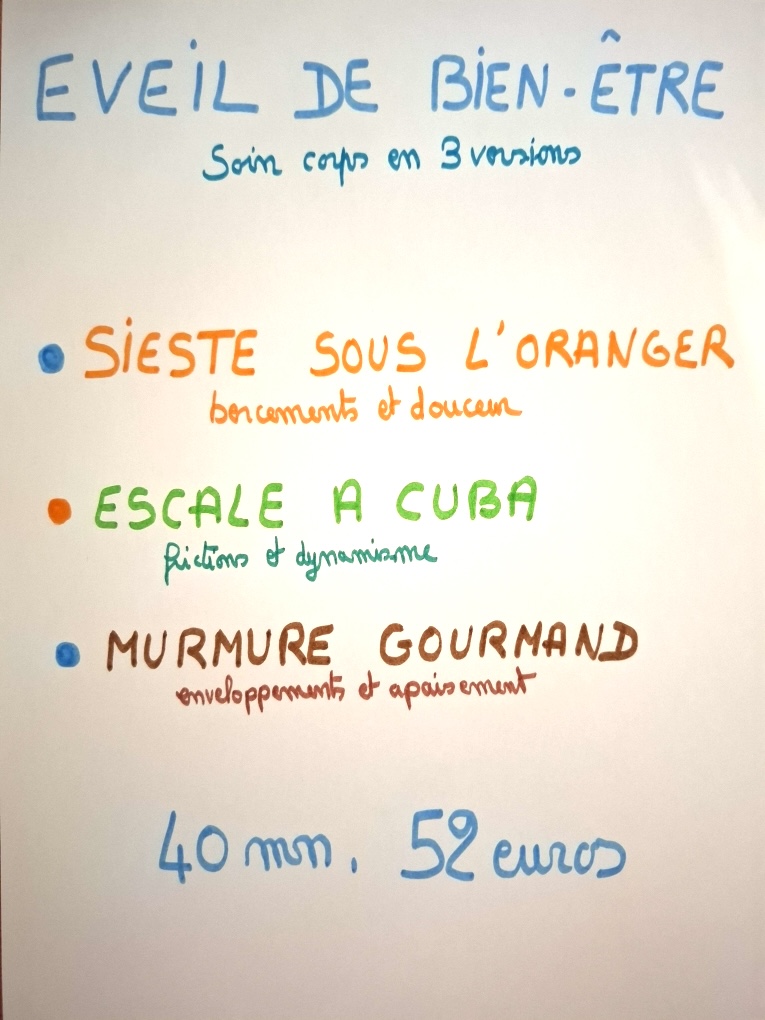 EVEIL DE BIEN-ÊTRE
Soin corps en 3 versions
SIESTE SOUS L'ORANGER
bercements et douceur
ESCALE A CUBA
frictions et dynamisme
MURMURE GOURMAND
enveloppements et apaisement
40 mn. 52 euros